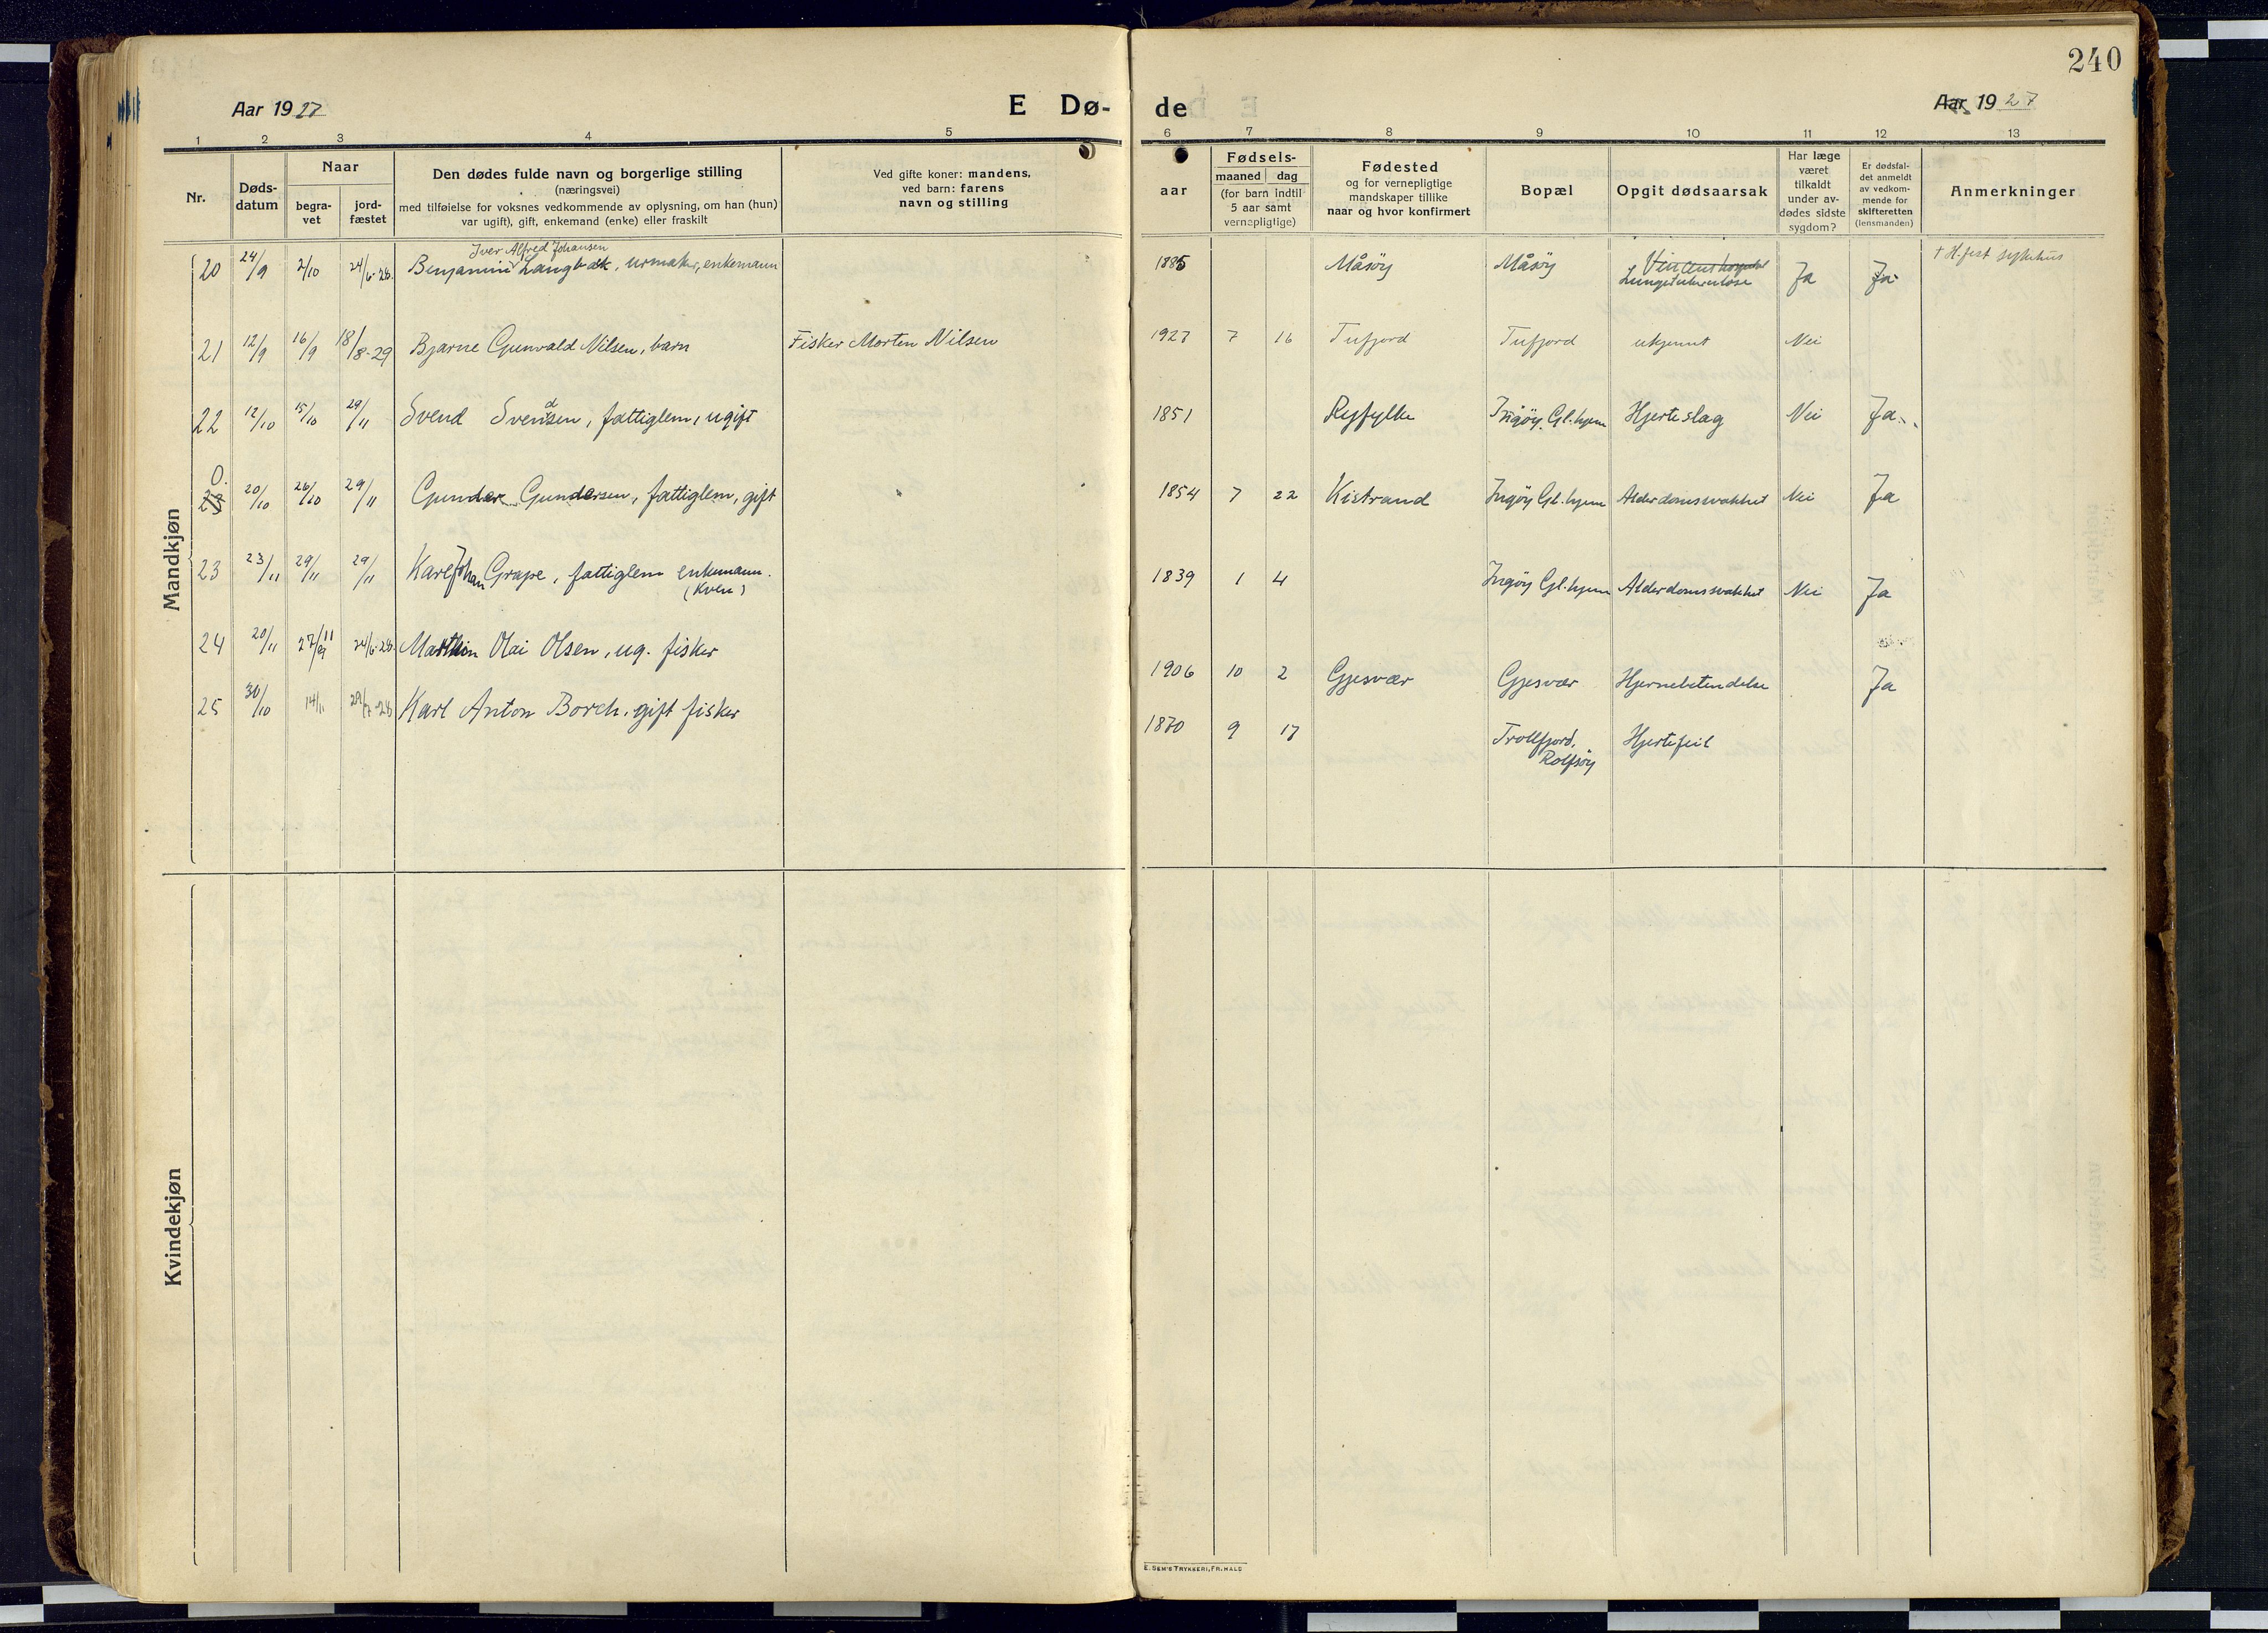 240
Aar 1927
E Dø-
de
Aar 1927
1 2 3 4 5 6 7 8 9 10 11 12 13
Nr.
Døds-
datum
Naar
begra-
vet
jord-
fæstet
Den dødes fulde navn og borgerlige stilling
(næringsvei)
med tilføielse for voksnes vedkommende av oplysning, om han (hun)
var ugift), gift, enkemand (enke) eller fraskilt
Ved gifte koner: mandens,
ved barn: farens
navn og stilling
aar
Fødsels-
maaned dag
(for barn indtil
5 aar samt
vernepligtige)
Fødested
og for vernepligtige
mandskaper tillike
naar og hvor konfirmert
Bopæl
Opgit dødsaarsak
Har læge
været
tilkaldt
under av-
dødes sidste
sygdom?
Er dødsfal-
det anmeldt
av vedkom-
mende for
skifteretten
(lensmanden)
Anmerkninger
Mandkjøn
Iver Alfred Johansen
20 24/9 2/10 24/6-28. Benjamin Langbak, urmaker, enkemann 1885 Måsøy Måsøy Lungetuberkulose Ja Ja † H.fest sykehus
21 12/9 16/9 18/8-29 Bjarne Gunvald Nilsen, barn Fisker Morten Nilsen 1927 7 16 Tufjord Tufjord ukjennt Nei
22 12/10 15/10 29/11 Svend Svendsen, fattiglem, ugift 1851 Ryfylke Ingøy Gl.hjem Hjerteslag Nei Ja.
0.
23 20/10 26/10 29/11 Gunder Gundersen, fattiglem, gift 1854 7 22 Kistrand Ingøy Gl.hjem Alderdomssvakhet Nei Ja
23 23/11 29/11 29/11 Karl Johan Grape, fattiglem enkemann. 1839 1 4 Ingøy Gl.hjem Alderdomssvakhet Nei Ja
(Kven)
24 20/11 27/11 24/6-28. Marthin Olai Olsen, ug. fisker 1906 10 2 Gjesvær Gjesvær Hjernebetendelse Ja
25 30/10 14/11 29/7-28 Karl Anton Borch, gift fisker 1870 9 17 Trollfjord, Hjertefeil
Rolfsøy
Kvindekjøn
E. SEM'S TRYKKERI, FR.HALD